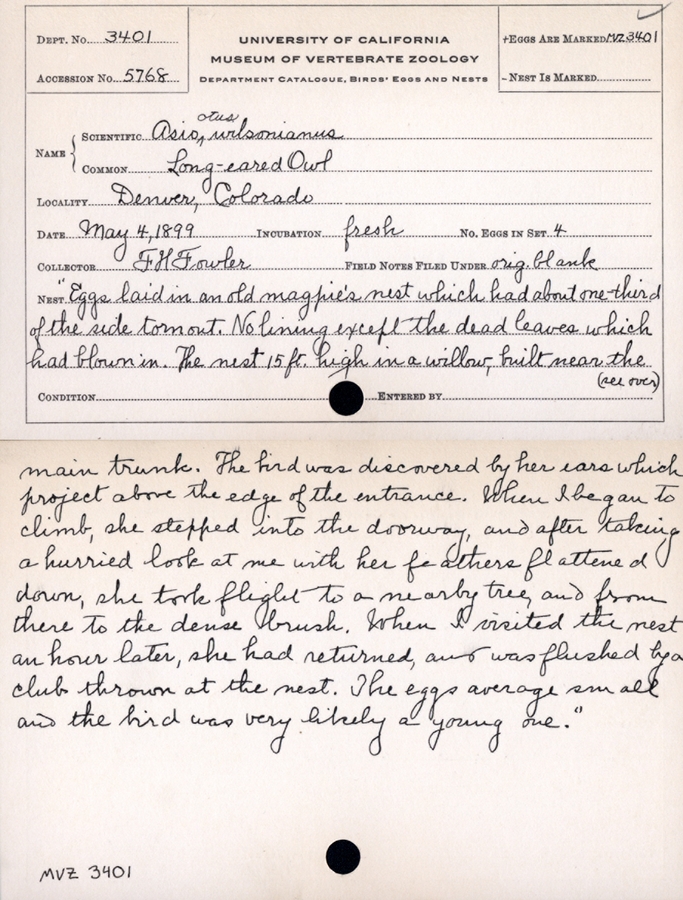 Dept. No. 3401
Accession No. 5768
UNIVERSITY OF CALIFORNIA
MUSEUM OF VERTEBRATE ZOOLOGY
Department Catalogue, Birds' Eggs and Nests
+Eggs Are Marked MVZ 3401
-Nest Is Marked
Name { Scientific Asio, otus wilsonianus
Common Long-eared Owl
Locality Denver, Colorado
Date May 4, 1899 Incubation fresh No. Eggs in Set 4
Collector F H Fowler Field Notes Filed Under orig. blank
Nest "Eggs laid in an old magpie's nest which had about one-third
of the side torn out. No lining except the dead leaves which
had blown in. The nest 15 ft. high in a willow, built near the
(see over)
Condition Entered by
main trunk. The bird was discovered by her ears which
project above the edge of the entrance. When I began to
climb, she stepped into the doorway, and after taking
a hurried look at me with her feathers flattened
down, she took flight to a nearby tree, and from
there to the dense brush. When I visited the nest
an hour later, she had returned, and was flushed by a
club thrown at the nest. The eggs average small
and the bird was very likely a young one."
MVZ 3401